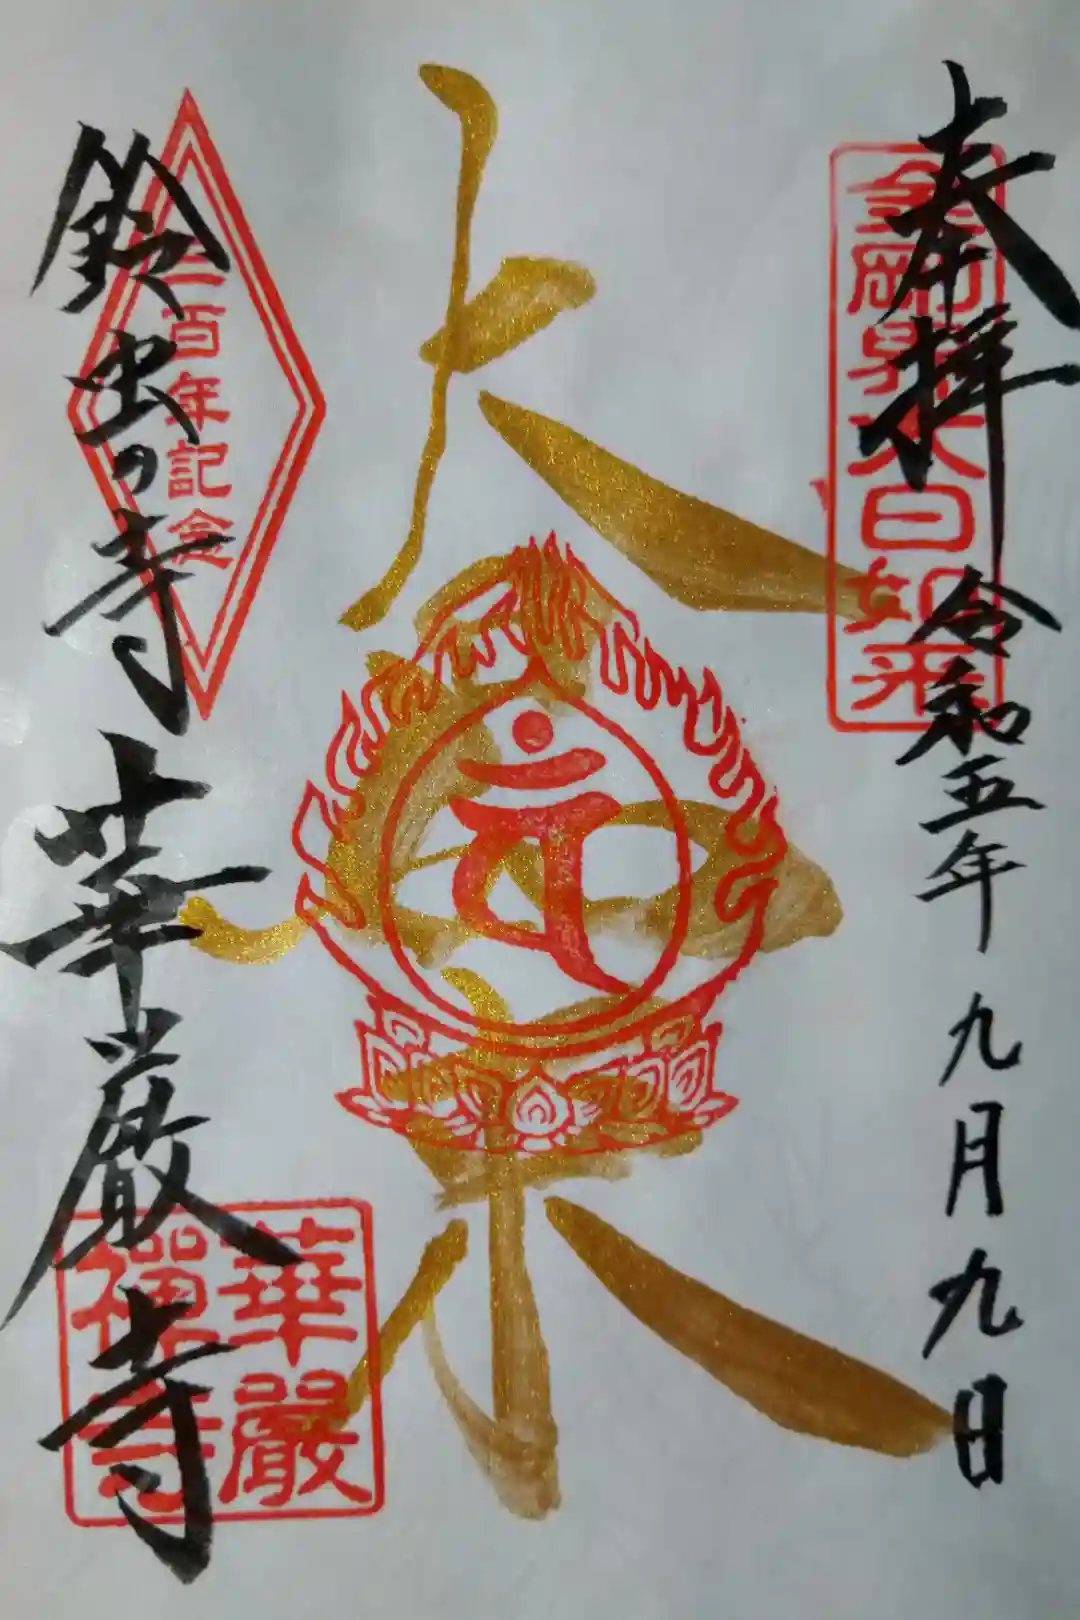 奉拝 令和五年 九月九日
金剛界大日如来
大日如来
鈴虫の寺 華厳寺
三百年記念
華嚴
禪寺